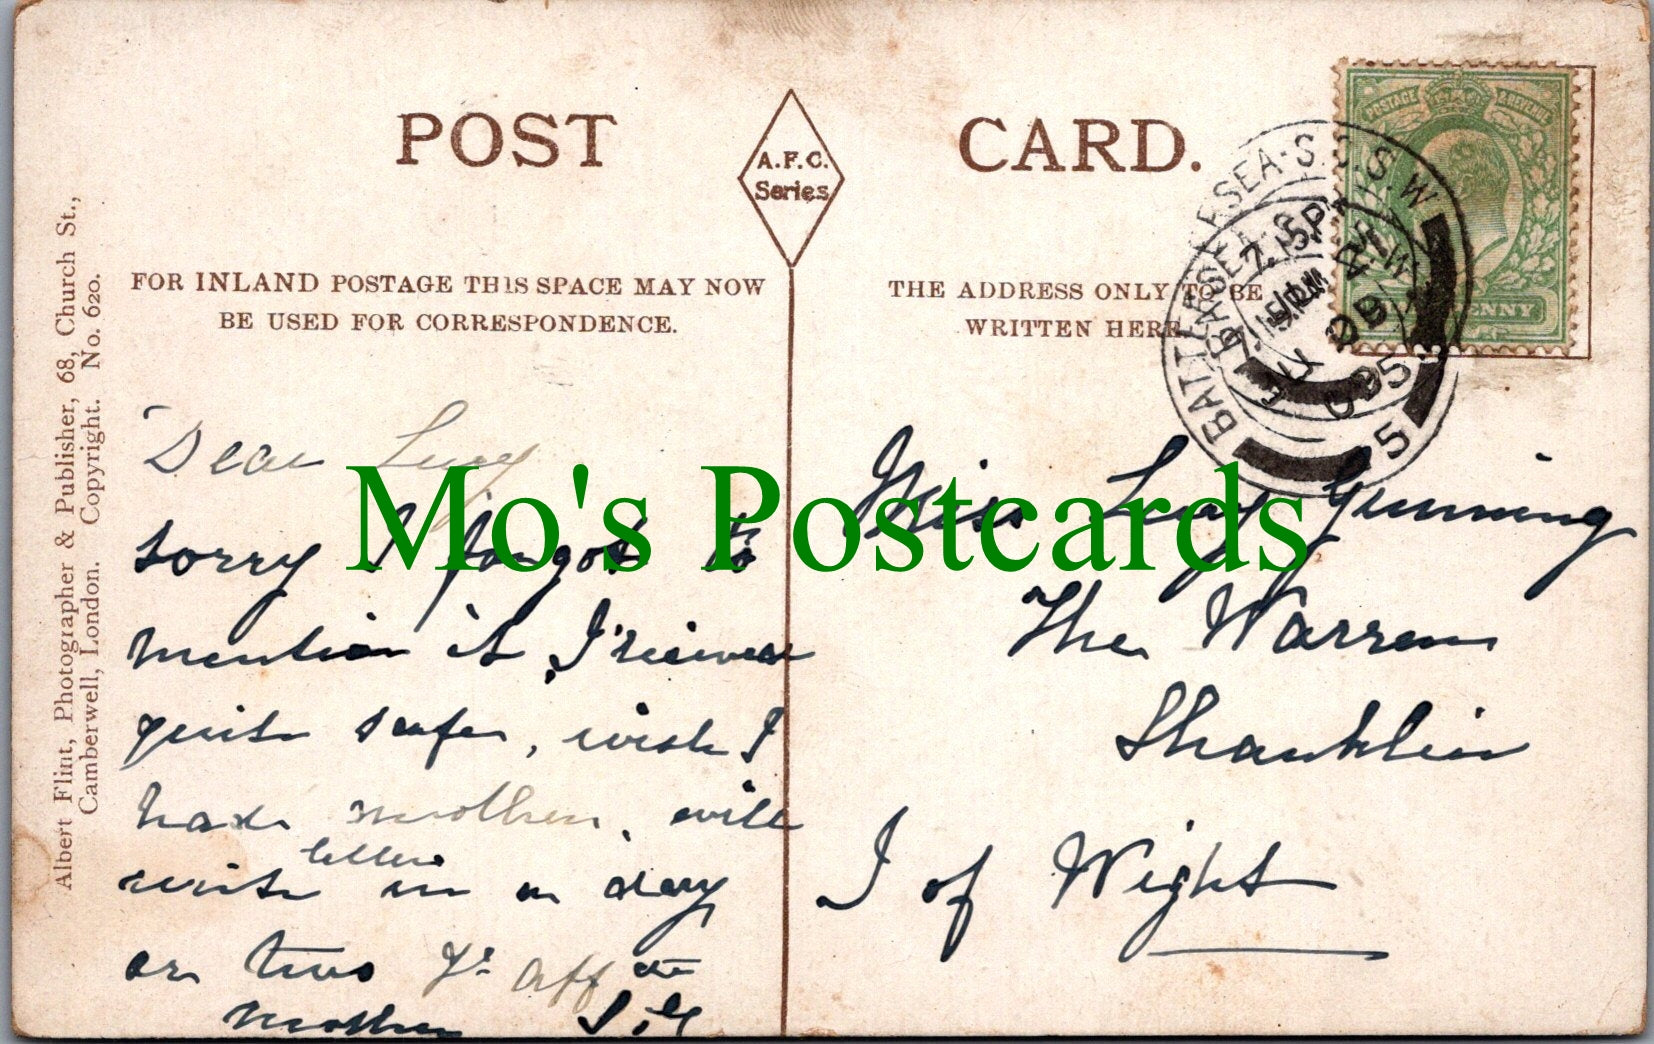 POST CARD.
A.F.C.
Series
FOR INLAND POSTAGE THIS SPACE MAY NOW
BE USED FOR CORRESPONDENCE.
THE ADDRESS ONLY TO BE
WRITTEN HERE
Albert Flint, Photographer & Publisher, 68, Church St.,
Camberwell, London. Copyright. No. 620.
POSTAGE REVENUE
PENNY
BATTERSEA·S.O.S.W
BATTERSEA·S.
7.15PM
95
Mo's Postcards
Dear Lucy
sorry I forgot to
mention it, I
quite safe, wish I
had mother. will
write letter in a day
or two Yr aff
mother
Miss Lucy Gunning
The Warren
Shanklin
I of Wight